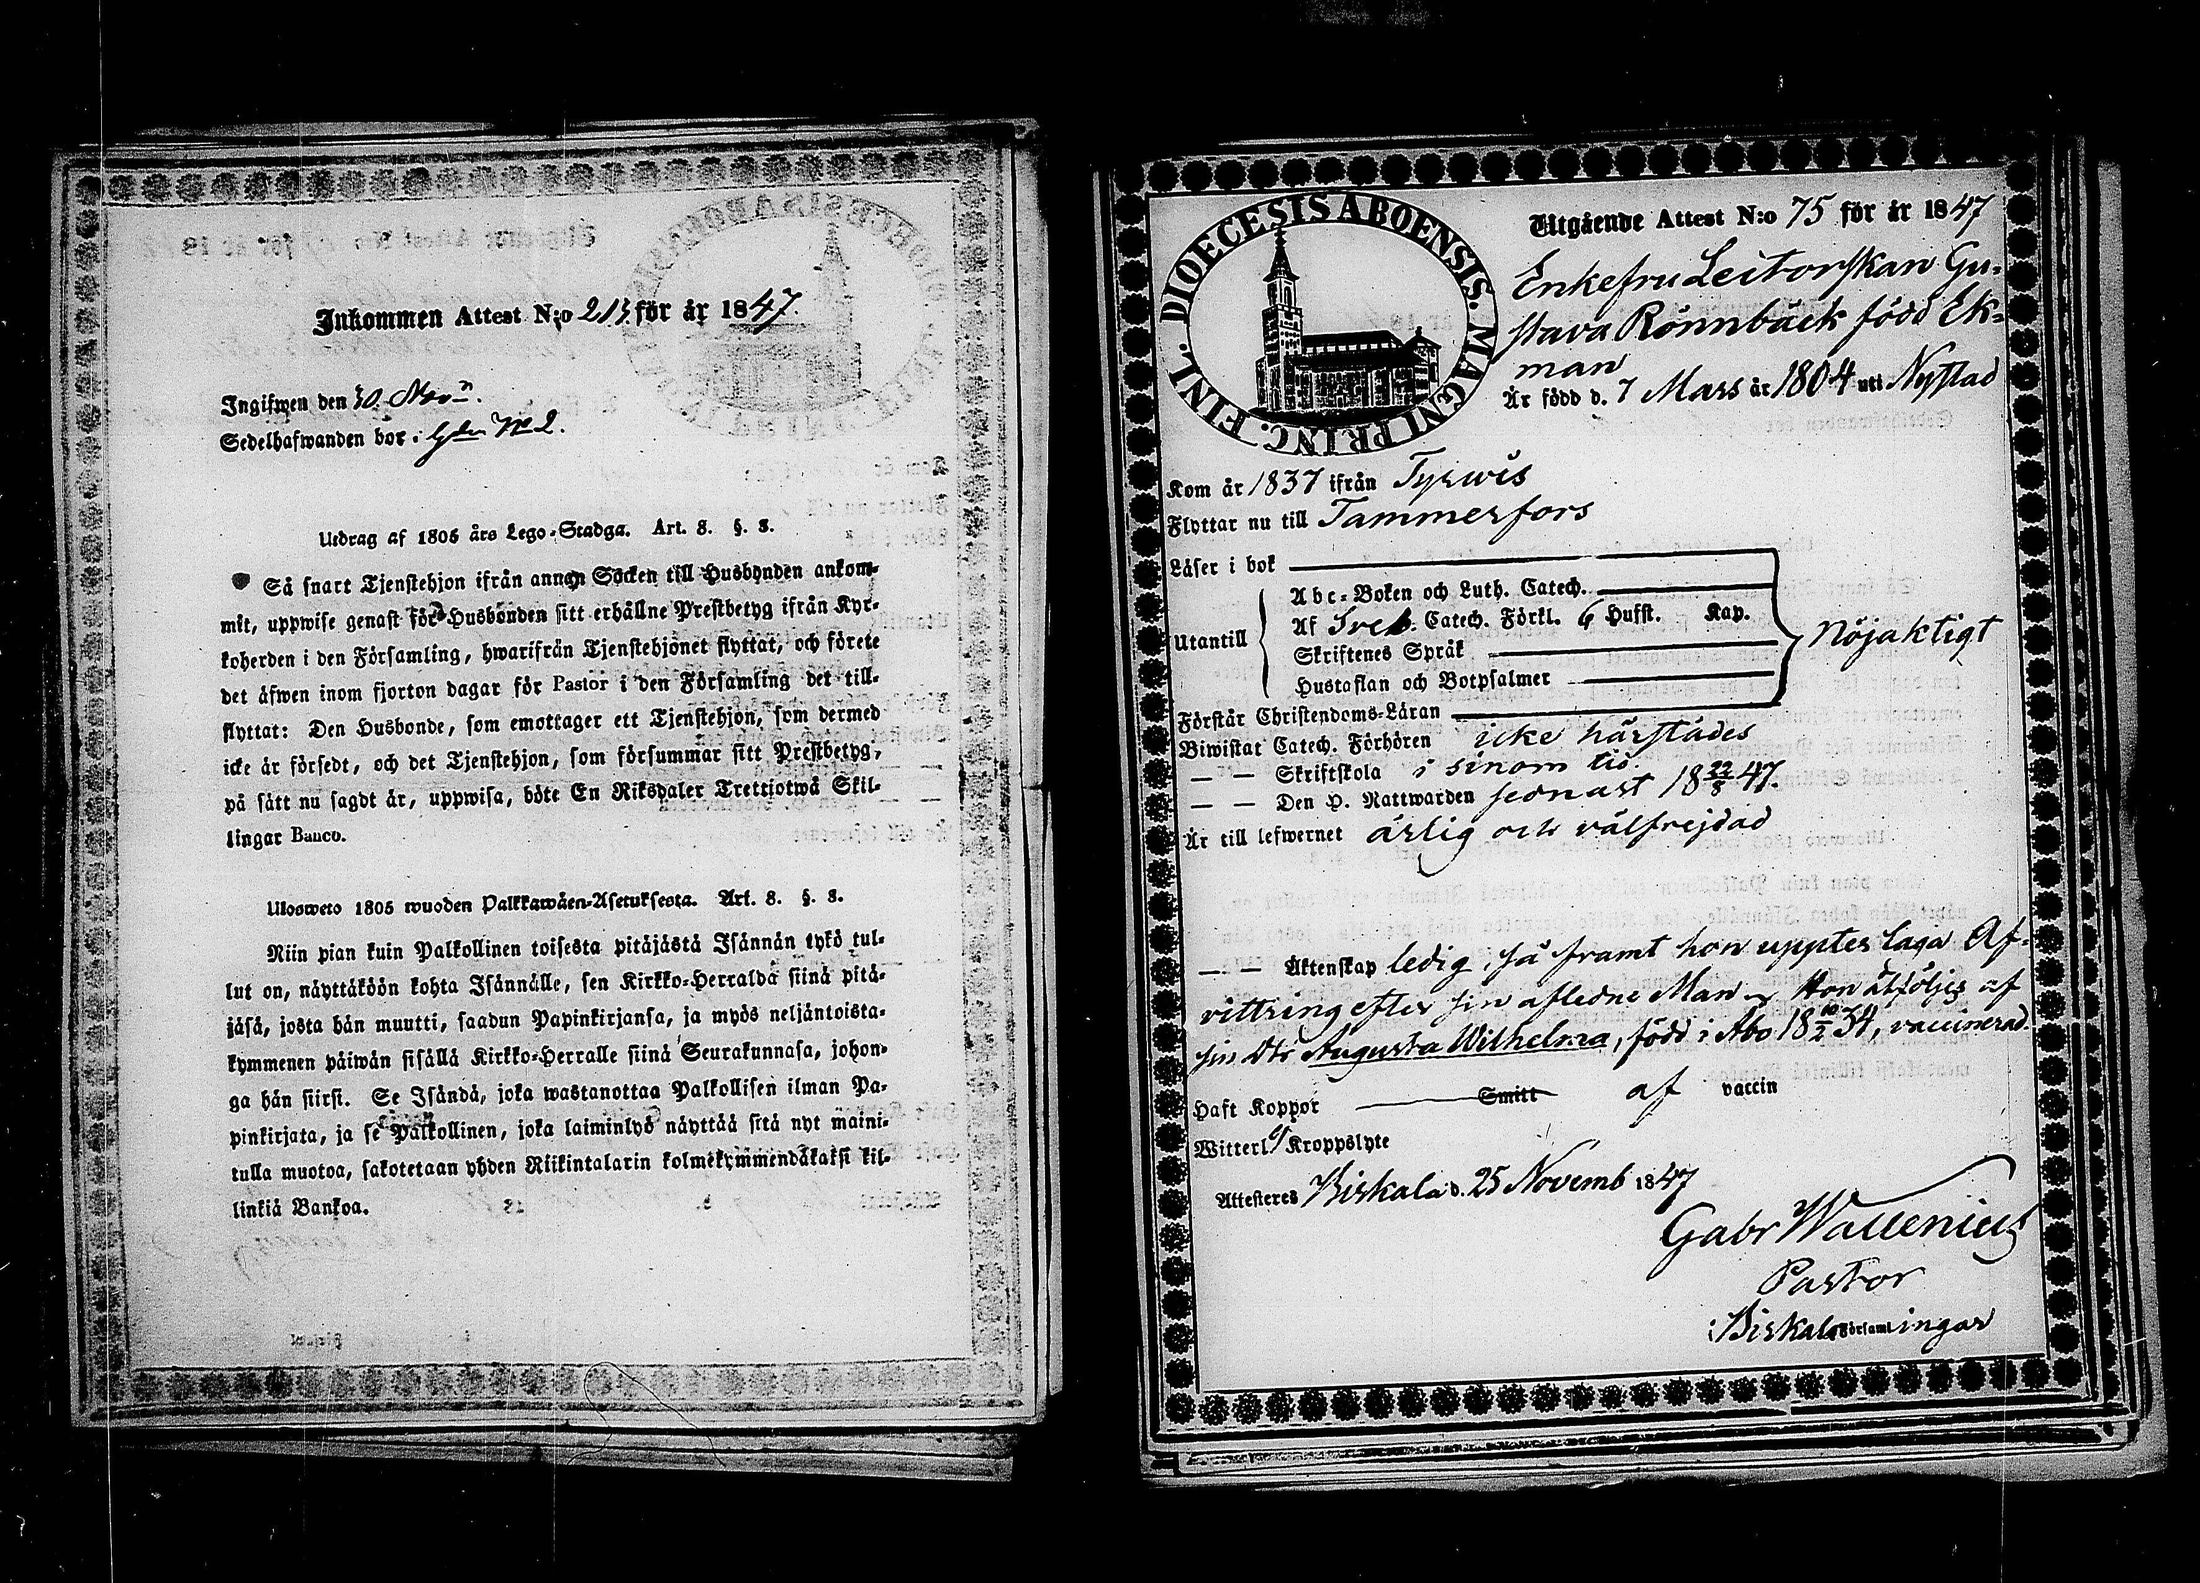 Inkommen Attest N:o 213 för år 1847.
Ingifwen den 30 Nov.
Sedelhafwanden bor i N:o 2.
Utdrag af 1805 års Lego-Stadga. Art. 8. §. 8.
Så snart Tjenstehjon ifrån annan Socken till Husbonden ankom-
mit, uppwise genast för Husbonden sitt erhållne Prestbetyg ifrån Kyr-
koherden i den Församling, hwarifrån Tjenstehjonet flyttat, och förete
det äfwen inom fjorton dagar för Pastor i den Församling det till-
flyttat: Den Husbonde, som emottager ett Tjenstehjon, som dermed
icke är försedt, och det Tjenstehjon, som försummar sitt Prestbetyg,
på sätt nu sagdt är, uppwisa, böte En Riksdaler Trettiotwå Skil-
lingar Banco.
Ulosweto 1805 wuoden Palkkawäen-Asetuksesta. Art. 8. §. 8.
Niin pian kuin Palkollinen toisesta pitäjästä Isännän tykö tul-
lut on, näyttäköön kohta Isännälle, sen Kirkko-Herralda siinä pitä-
jäsä, josta hän muutti, saadun Papinkirjansa, ja myös neljäntoista-
kymmenen päiwän sisällä Kirkko-Herralle siinä Seurakunnasa, johon-
ga hän siirsi. Se Isändä, joka wastanottaa Palkollisen ilman Pa-
pinkirjata, ja se Palkollinen, joka laiminlyö näyttää sitä nyt maini-
tulla muotoa, sakotetaan yhden Riikintalarin kolmekymmendäkaksi kil-
linkiä Bankoa.
DIOECESIS ABOENSIS. MAGNI PRINC. FINL.
Utgående Attest N:o 75 för år 1847
Enkefru Leitorskan Gu-
stava Rönnbäck född Ek-
man
Är född d. 7 Mars år 1804 uti Nystad
Kom år 1837 ifrån Tyrwis
Flyttar nu till Tammerfors
Läser i bok
Abc-Boken och Luth. Catech.
Utantill Af Sveb. Catech. Förkl. 6 Hufst. Kap. Nöjaktigt
Skriftenes Språk
Hustaflan och Botpsalmer
Förstår Christendoms-Läran
Biwistat Catech. Förhören icke härstädes
— — Skriftskola i sinom tid
— — Den H. Nattwarden sednast 18 22/8 47.
Är till lefwernet ärlig och välfrejdad
— — Äktenskap ledig, så framt hon uppter laga Af-
vittring efter sin afledne Man. Hon åtföljes af
sin Dtr Augusta Wilhelma, född i Åbo 18 10/2 34, vaccinerad.
Haft Koppor Smitt af vaccin
Witterl. Kroppslyte
Attesteres Birkala d. 25 Novemb 1847
Gabr Wallenius
Pastor
i Birkala Församlingar